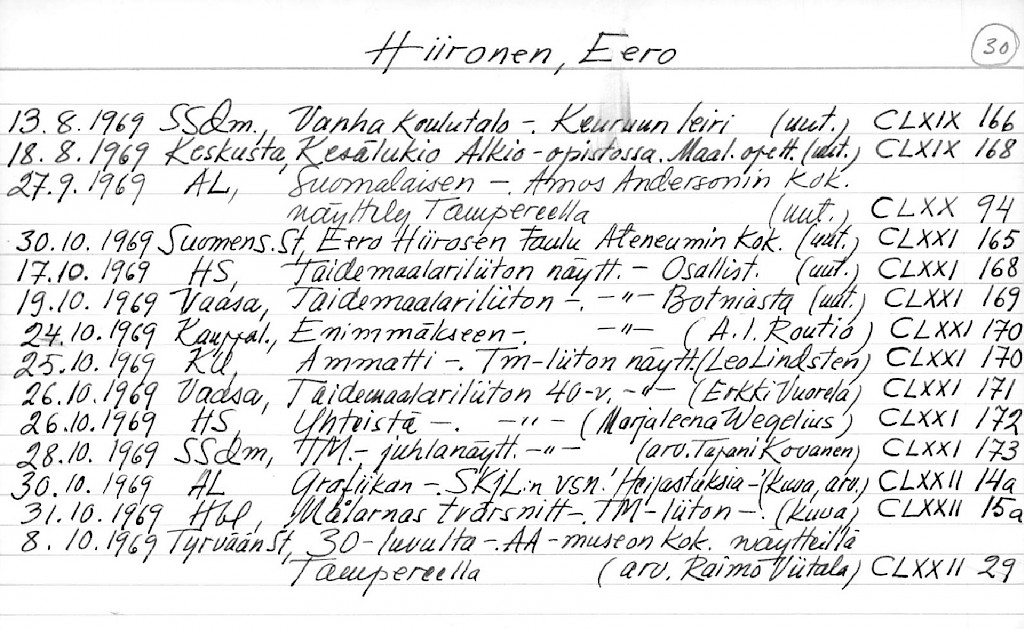 Hiironen, Eero 30
13.8.1969 SSdm., Vanha koulutalo -. Keuruun leiri (uut.) CLXIX 166
18.8.1969 Keskusta, Kesälukio Alkio-opistossa. Maal. opett. (uut.) CLXIX 168
27.9.1969 AL, Suomalaisen -. Amos Andersonin kok.
näyttely Tampereella (uut.) CLXX 94
30.10.1969 Suomens.St, Eero Hiirosen taulu Ateneumin kok. (uut.) CLXXI 165
17.10.1969 HS, Taidemaalariliiton näytt. - Osallist. (uut.) CLXXI 168
19.10.1969 Vaasa, Taidemaalariliiton -. -"- Botniasta (uut.) CLXXI 169
24.10.1969 Kauppal., Enimmäkseen -. -"- (A.I. Routio) CLXXI 170
25.10.1969 KU, Ammatti -. Tm-liiton näytt. (Leo Lindsten) CLXXI 170
26.10.1969 Vaasa, Taidemaalariliiton 40-v. -"- (Erkki Vuorela) CLXXI 171
26.10.1969 HS, Yhteistä -. -"- (Marjaleena Wegelius) CLXXI 172
28.10.1969 SSdm, TM.- juhlanäytt. -"- (arv. Tapani Kovanen) CLXXI 173
30.10.1969 AL Grafiikan -. SKjL:n vsn! Heijastuksia -! (kuva, arv.) CLXXII 14a
31.10.1969 Hbl, Målarnas tvärsnitt -. TM-liiton -! (kuva) CLXXII 15a
8.10.1969 Tyrvään St, 30-luvulta -. AA-museon kok. näytteillä
Tampereella (arv. Raimo Viitala) CLXXII 29